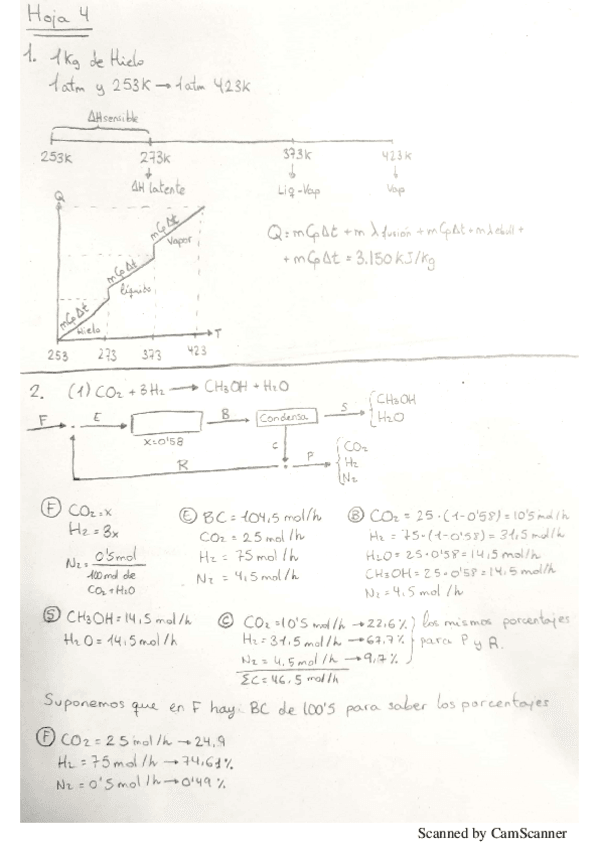 Hoja 4
1. 1Kg de Hielo
1atm y 253K → 1atm 423K
ΔHsensible
253K 273K 373K 423K
ΔH latente Liq-Vap Vap
Q
mCpΔt Vapor
mCpΔt líquido
mCpΔt Hielo
T
253 273 373 423
Q = mCpΔt + mλfusión + mCpΔt + mλebull +
+ mCpΔt = 3.150 kJ/kg
2. (1) CO2 + 3H2 → CH3OH + H2O
F E B Condensa S CH3OH
H2O
x=0'58
C
R P CO2
H2
N2
F CO2 = x
H2 = 3x
N2 = 0'5mol
100mol de
CO2+H2O
E BC = 104,5 mol/h
CO2 = 25 mol/h
H2 = 75 mol/h
N2 = 4,5 mol/h
B CO2 = 25·(1-0'58) = 10'5 mol/h
H2 = 75·(1-0'58) = 31,5 mol/h
H2O = 25·0'58 = 14,5 mol/h
CH3OH = 25·0'58 = 14,5 mol/h
N2 = 4,5 mol/h
S CH3OH = 14,5 mol/h
H2O = 14,5 mol/h
C CO2 = 10'5 mol/h → 22,6%
H2 = 31,5 mol/h → 67,7%
N2 = 4,5 mol/h → 9,7%
ΣC = 46,5 mol/h
los mismos porcentajes
para P y R.
Suponemos que en F hay: BC de 100'5 para saber los porcentajes
F CO2 = 25 mol/h → 24,9
H2 = 75 mol/h → 74,61%
N2 = 0'5 mol/h → 0'49%
Scanned by CamScanner